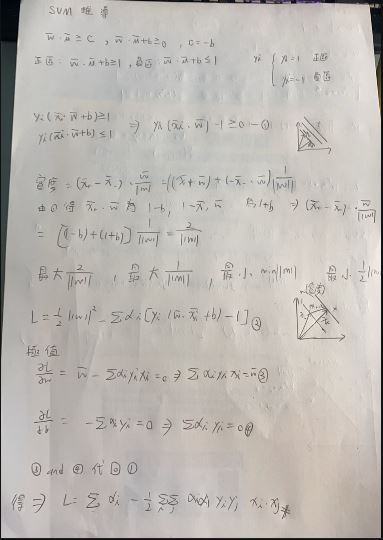 SVM 推導
w̄·ū ≥ c , w̄·ū+b ≥ 0 , c=-b
正區: w̄·ū+b≥1, 負區: w̄·ū+b ≤ 1
yi { yi=1 正區
yi=-1 負區
yi(x̄i·w̄+b)≥1
yi(x̄i·w̄+b) ≤1 ⇒ yi(x̄i·w̄)-1≥0-①
寬度=(x̄+-x̄-)·w̄/||w|| =((x̄+·w̄)+(-x̄-·w̄)1/||w||
由①得 x̄+·w̄ 為 1-b, 1-x̄·w̄ 為1+b ⇒ (x̄+-x̄-)·w̄/||w||
= [(1-b)+(1+b)] 1/||w|| = 2/||w||
最大 2/||w|| , 最大 1/||w|| , 最小 min||w|| 最小 1/2||w
L=1/2||w||²-Σαi[yi(w̄·x̄i+b)-1]②
極值
∂L/∂w = w̄ - Σαiyixi=0 ⇒ Σαiyixi=w̄③
∂L/∂b = -Σαiyi=0 ⇒ Σαiyi=0④
③ and ④ 代回①
得 ⇒ L= Σαi - 1/2 ΣΣ αiαj yiyj xi·xj